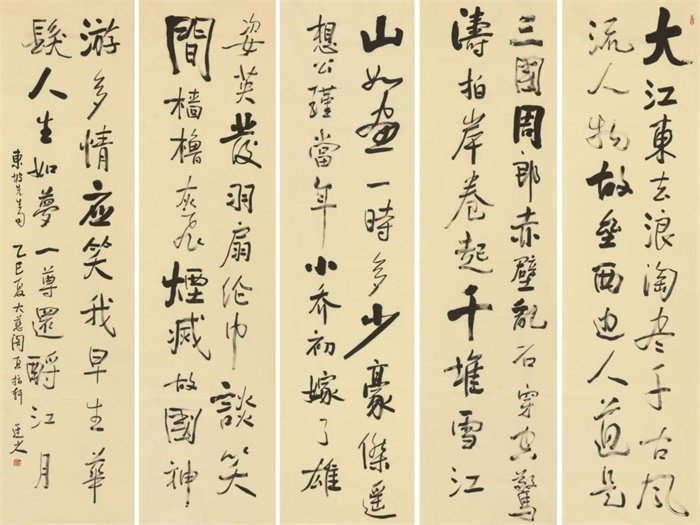 大江東去浪淘尽千古風
流人物故壘西边人道是
三國周郎赤壁亂石穿空驚
濤拍岸卷起千堆雪江
山如畫一時多少豪傑遥
想公瑾當年小乔初嫁了雄
姿英發羽扇纶巾談笑
間樯櫓灰飛煙滅故國神
游多情应笑我早生華
髮人生如夢一尊還酹江月
東坡先生句 乙巳夏大